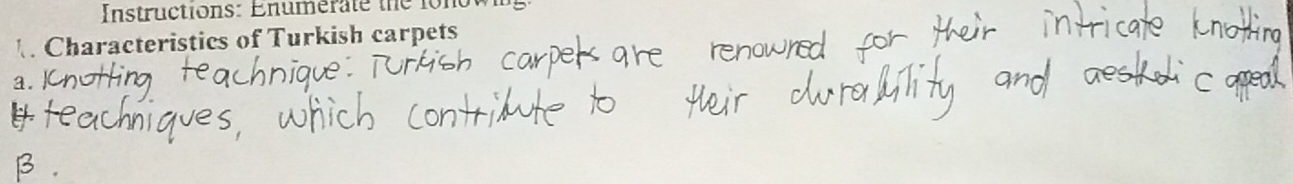 Instructions: Enumerate the following:
1. Characteristics of Turkish carpets
a. Knotting teachnique: Turkish carpets are renowred for their intricate knotting
teachniques, which contribute to their durability and aesthetic appeal
B.